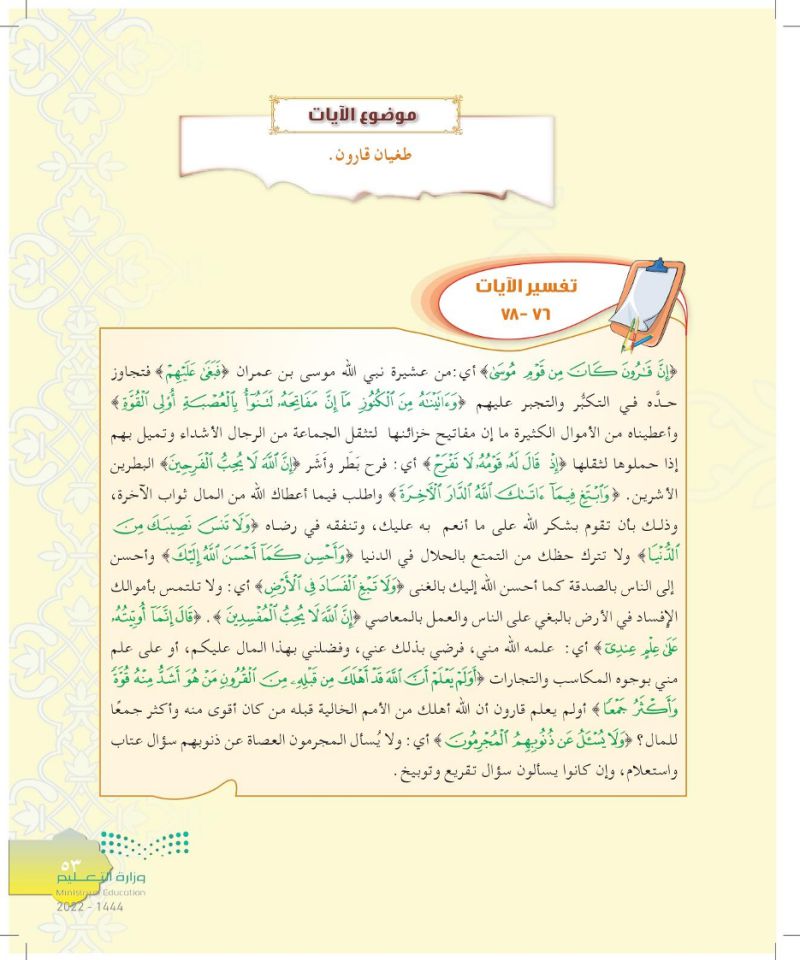 موضوع الآيات
طغيان قارون.
تفسير الآيات
٧٦ -٧٨
﴿إِنَّ قَٰرُونَ كَانَ مِن قَوْمِ مُوسَىٰ﴾ أي:من عشيرة نبي الله موسى بن عمران ﴿فَبَغَىٰ عَلَيْهِمْ﴾ فتجاوز
حدَّه في التكبُّر والتجبر عليهم ﴿وَءَاتَيْنَٰهُ مِنَ ٱلْكُنُوزِ مَآ إِنَّ مَفَاتِحَهُۥ لَتَنُوٓأُ بِٱلْعُصْبَةِ أُو۟لِى ٱلْقُوَّةِ﴾
وأعطيناه من الأموال الكثيرة ما إن مفاتيح خزائنها لتثقل الجماعة من الرجال الأشداء وتميل بهم
إذا حملوها لثقلها ﴿إِذْ قَالَ لَهُۥ قَوْمُهُۥ لَا تَفْرَحْ﴾ أي: فرح بَطَر وأَشَر ﴿إِنَّ ٱللَّهَ لَا يُحِبُّ ٱلْفَرِحِينَ﴾ البطرين
الأشرين. ﴿وَٱبْتَغِ فِيمَآ ءَاتَىٰكَ ٱللَّهُ ٱلدَّارَ ٱلْأَخِرَةَ﴾ واطلب فيما أعطاك الله من المال ثواب الآخرة،
وذلك بأن تقوم بشكر الله على ما أنعم به عليك، وتنفقه في رضاه ﴿وَلَا تَنسَ نَصِيبَكَ مِنَ
ٱلدُّنْيَا﴾ ولا تترك حظك من التمتع بالحلال في الدنيا ﴿وَأَحْسِن كَمَآ أَحْسَنَ ٱللَّهُ إِلَيْكَ﴾ وأحسن
إلى الناس بالصدقة كما أحسن الله إليك بالغنى ﴿وَلَا تَبْغِ ٱلْفَسَادَ فِى ٱلْأَرْضِ﴾ أي: ولا تلتمس بأموالك
الإفساد في الأرض بالبغي على الناس والعمل بالمعاصي ﴿إِنَّ ٱللَّهَ لَا يُحِبُّ ٱلْمُفْسِدِينَ﴾. ﴿قَالَ إِنَّمَآ أُوتِيتُهُۥ
عَلَىٰ عِلْمٍ عِندِىٓ﴾ أي: علمه الله مني، فرضي بذلك عني، وفضلني بهذا المال عليكم، أو على علم
مني بوجوه المكاسب والتجارات ﴿أَوَلَمْ يَعْلَمْ أَنَّ ٱللَّهَ قَدْ أَهْلَكَ مِن قَبْلِهِۦ مِنَ ٱلْقُرُونِ مَنْ هُوَ أَشَدُّ مِنْهُ قُوَّةً
وَأَكْثَرُ جَمْعًا﴾ أولم يعلم قارون أن الله أهلك من الأمم الخالية قبله من كان أقوى منه وأكثر جمعًا
للمال؟ ﴿وَلَا يُسْـَٔلُ عَن ذُنُوبِهِمُ ٱلْمُجْرِمُونَ﴾ أي: ولا يُسأل المجرمون العصاة عن ذنوبهم سؤال عتاب
واستعلام، وإن كانوا يسألون سؤال تقريع وتوبيخ.
٥٣
وزارة التعليم
Ministry of Education
2022 - 1444